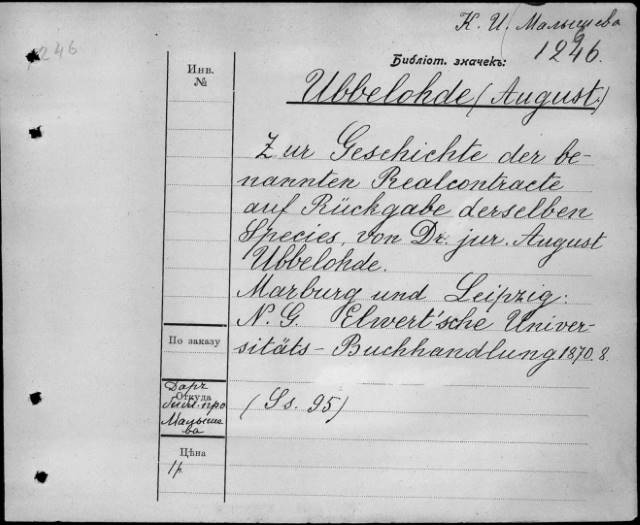 К. И. Малышева
1246
Библіот. значекъ:
1246.
Инв.
№
Ubbelohde (August.)
Zur Geschichte der be-
nannten Realcontracte
auf Rückgabe derselben
Species, von Dr. jur. August
Ubbelohde.
Marburg und Leipzig:
N. G. Elwert'sche Univer-
sitäts-Buchhandlung 1870. 8.
(Ss. 95)
По заказу
Откуда
Даръ
библ. про
Малыше
ва
Цѣна
1р